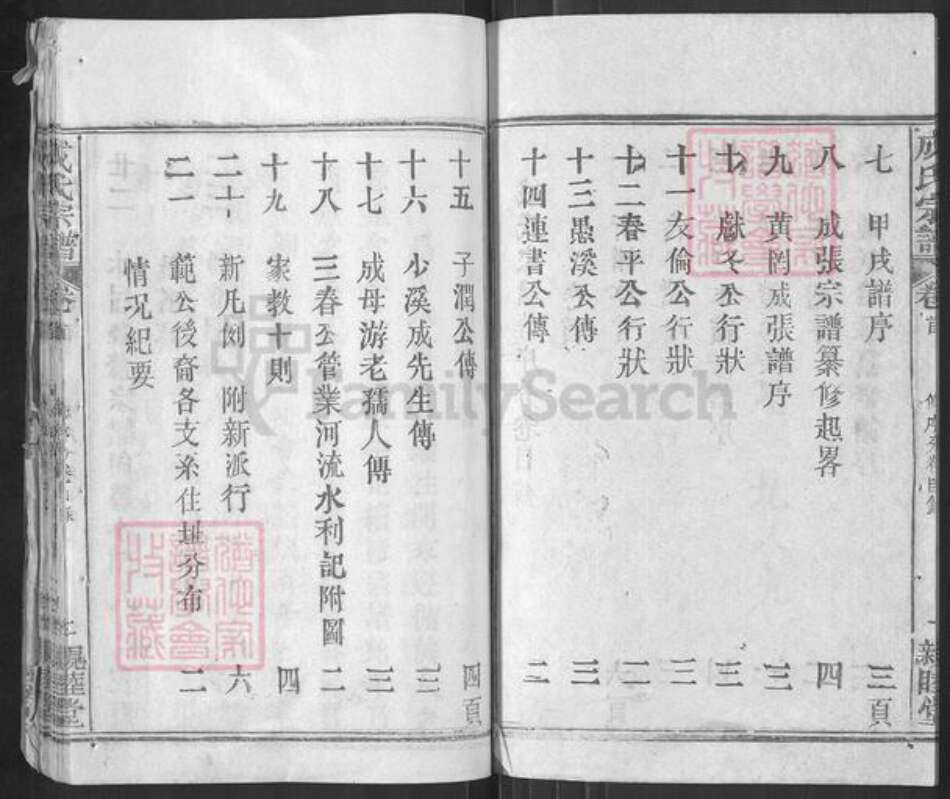 成氏宗譜
卷首
新睦堂
七 甲戌譜序 三頁
八 成張宗譜纂修起畧 四
九 黄岡成張譜序 三
十 獻冬公行狀 三
十一 友倫公行狀 三
十二 春平公行狀 二
十三 愚溪公傳 三
十四 連書公傳 二
十五 子潤公傳 四頁
十六 少溪成先生傳 三
十七 成母游老孺人傳 三
十八 三春公管業河流水利記附圖 二
十九 家教十則 四
二十 新凡例 附新派行 六
二一 範公後裔各支系住址分布 二
情况紀要
成氏宗譜
卷首
睦堂
FamilySearch